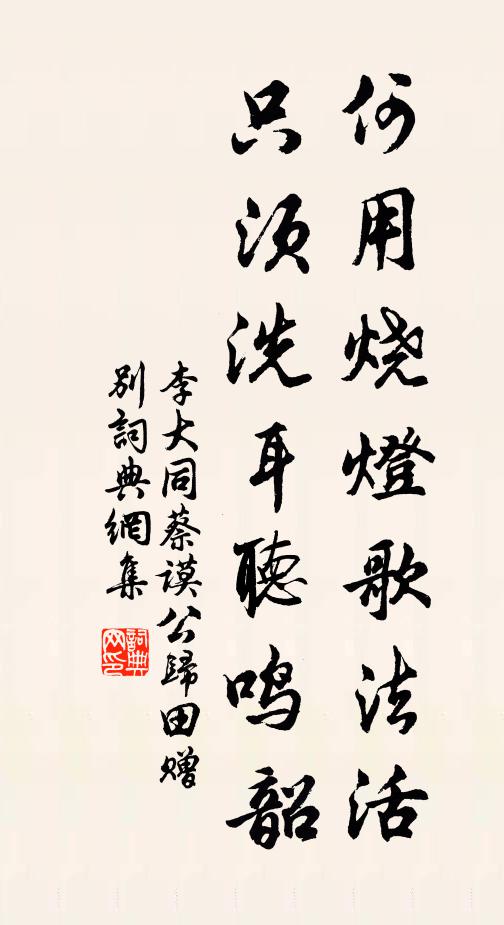 何用烧燈歌法活
只须洗耳聽鸣韶
李大同蔡谟公歸田赠
别詞典網集
詞典网印